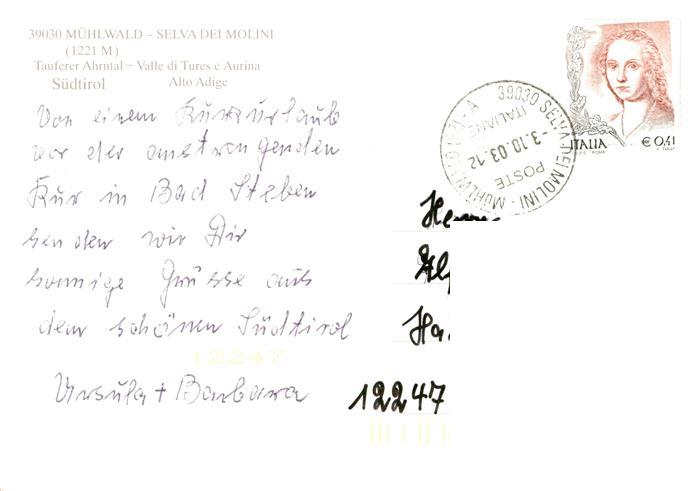 39030 MÜHLWALD – SELVA DEI MOLINI
(1221 M)
Tauferer Ahrntal – Valle di Tures e Aurina
Südtirol Alto Adige
Von einem Kurzurlaub
vor der anstrengenden
Kur in Bad Steben
senden wir Dir
sonnige Grüsse aus
dem schönen Südtirol
Ursula + Barbara
39030 SELVA DEI MOLINI - MÜHLWALD
POSTE ITALIANE
-3.10.03.12
ITALIA € 0,41
12247
12247